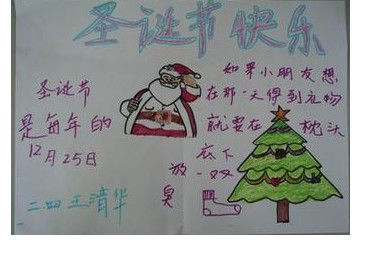 圣诞节快乐
圣诞节
是每年的
12月25日
如果小朋友想
在那一天得到礼物
就要在枕头
底下
放一双
臭
二四王清华